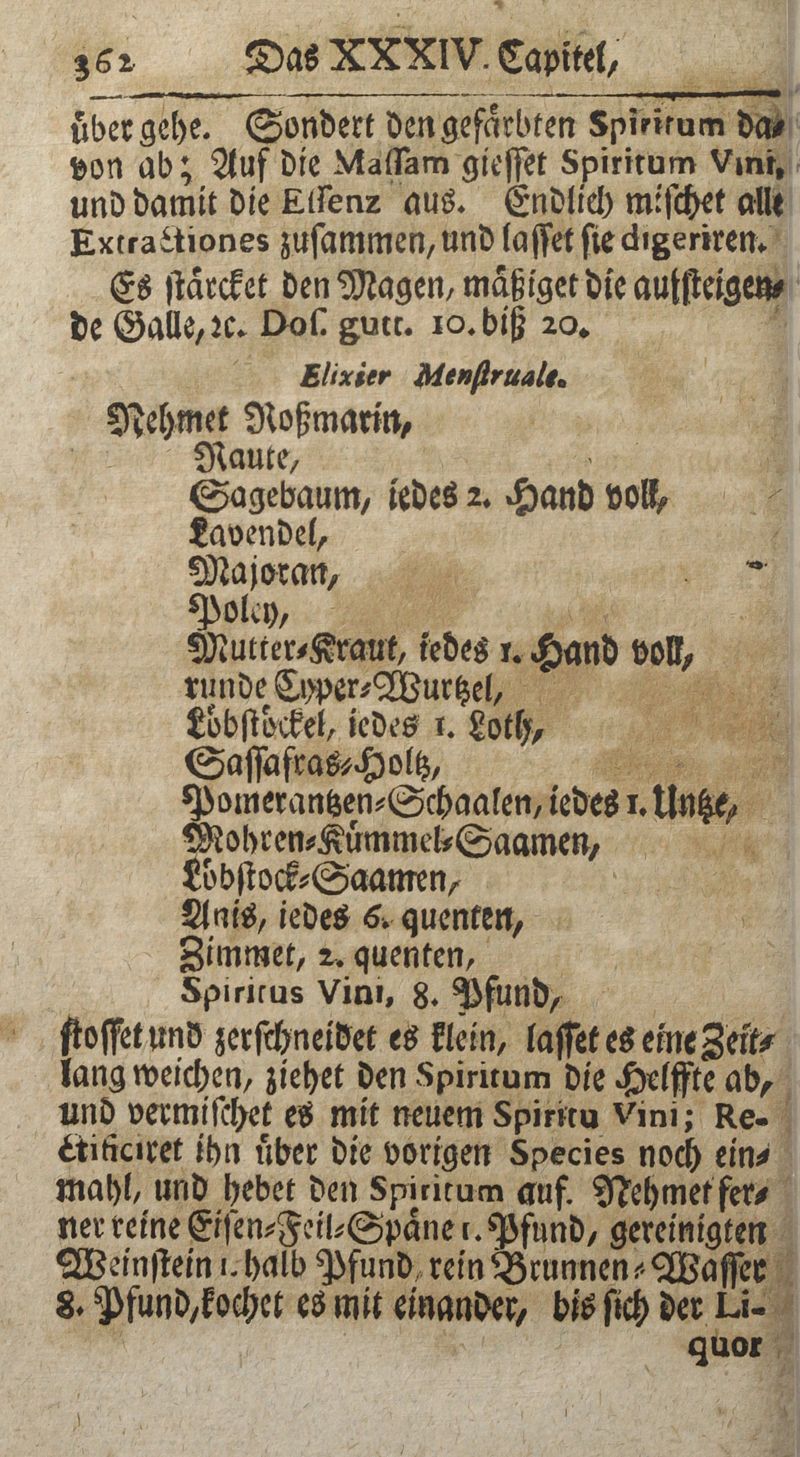 362 Das XXXIV. Capitel,
über gehe. Sondert den gefärbten Spiritum da-
von ab; Auf die Massam giesset Spiritum Vini,
und damit die Essenz aus. Endlich mischet alle
Extractiones zusammen, und lasset sie digeriren.
Es stärcket den Magen, mäßiget die aufsteigen-
de Galle, ꝛc. Dos. gutt. 10. biß 20.
Elixier Menstruale.
Nehmet Roßmarin,
Raute,
Sagebaum, iedes 2. Hand voll,
Lavendel,
Majoran,
Poley,
Mutter-Kraut, iedes 1. Hand voll,
runde Cyper-Wurtzel,
Löbstöckel, iedes 1. Loth,
Sassafras-Holtz,
Pomerantzen-Schaalen, iedes 1. Untze,
Mohren-Kümmel-Saamen,
Löbstock-Saamen,
Anis, iedes 6. quenten,
Zimmet, 2. quenten,
Spiritus Vini, 8. Pfund,
stosset und zerschneidet es klein, lasset es eine Zeit-
lang weichen, ziehet den Spiritum die Helffte ab,
und vermischet es mit neuem Spiritu Vini; Re-
ctificiret ihn über die vorigen Species noch ein-
mahl, und hebet den Spiritum auf. Nehmet fer-
ner reine Eisen-Feil-Späne 1. Pfund, gereinigten
Weinstein 1. halb Pfund, rein Brunnen-Wasser
8. Pfund, kochet es mit einander, bis sich der Li-
quor